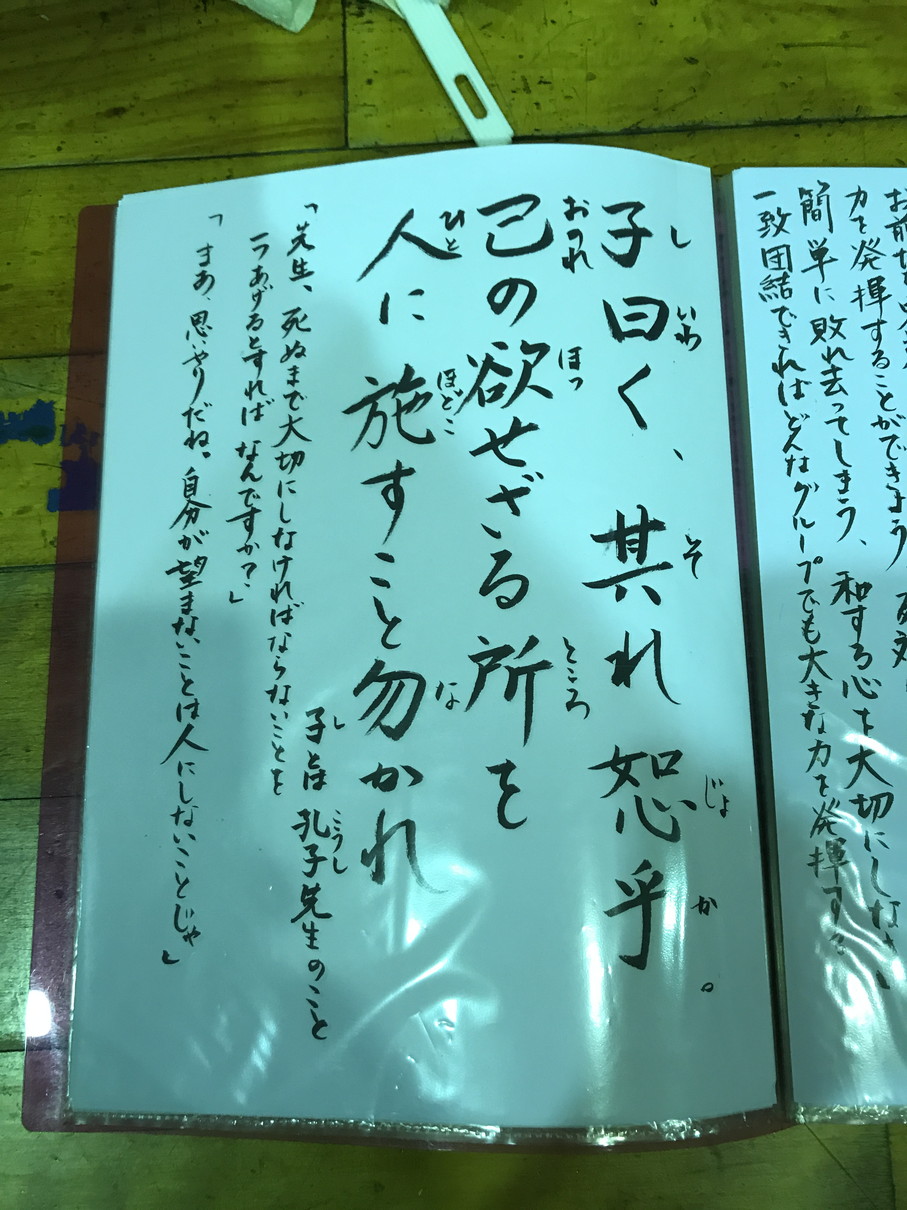 力を発揮することができよう
簡単に敗れ去ってしまう、和する心を大切にしなさい
一致団結できればどんなグループでも大きな力を発揮する
子曰く、其れ恕乎。
し いわ そ じょ か
己の欲せざる所を
おのれ ほっ ところ
人に施すこと勿かれ
ひと ほどこ な
子とは孔子先生のこと
し こうし
「先生、死ぬまで大切にしなければならないことを
一つあげるとすればなんですか?」
「まあ、思いやりだね。自分が望まないことは人にしないことじゃ」